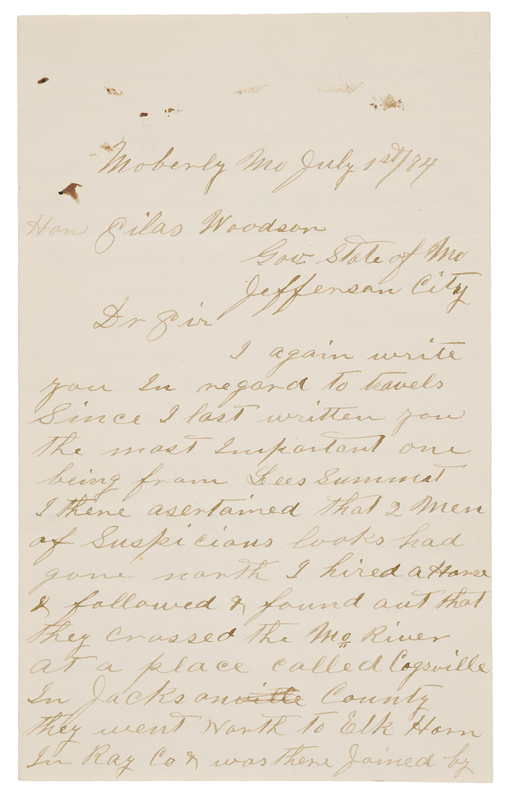 Moberly Mo July 1st/84
Hon Silas Woodson
Gov State of Mo
Jefferson City
Dr Sir
I again write
you In regard to travels
Since I last written you
the most Important one
being from Lees Summit
I there asertained that 2 Men
of Suspicious looks had
gone north I hired a Horse
& followed & found out that
they crossed the Mo River
at a place called Cogsville
In Jacksonville County
they went North to Elk Horn
In Ray Co & was there Joined by